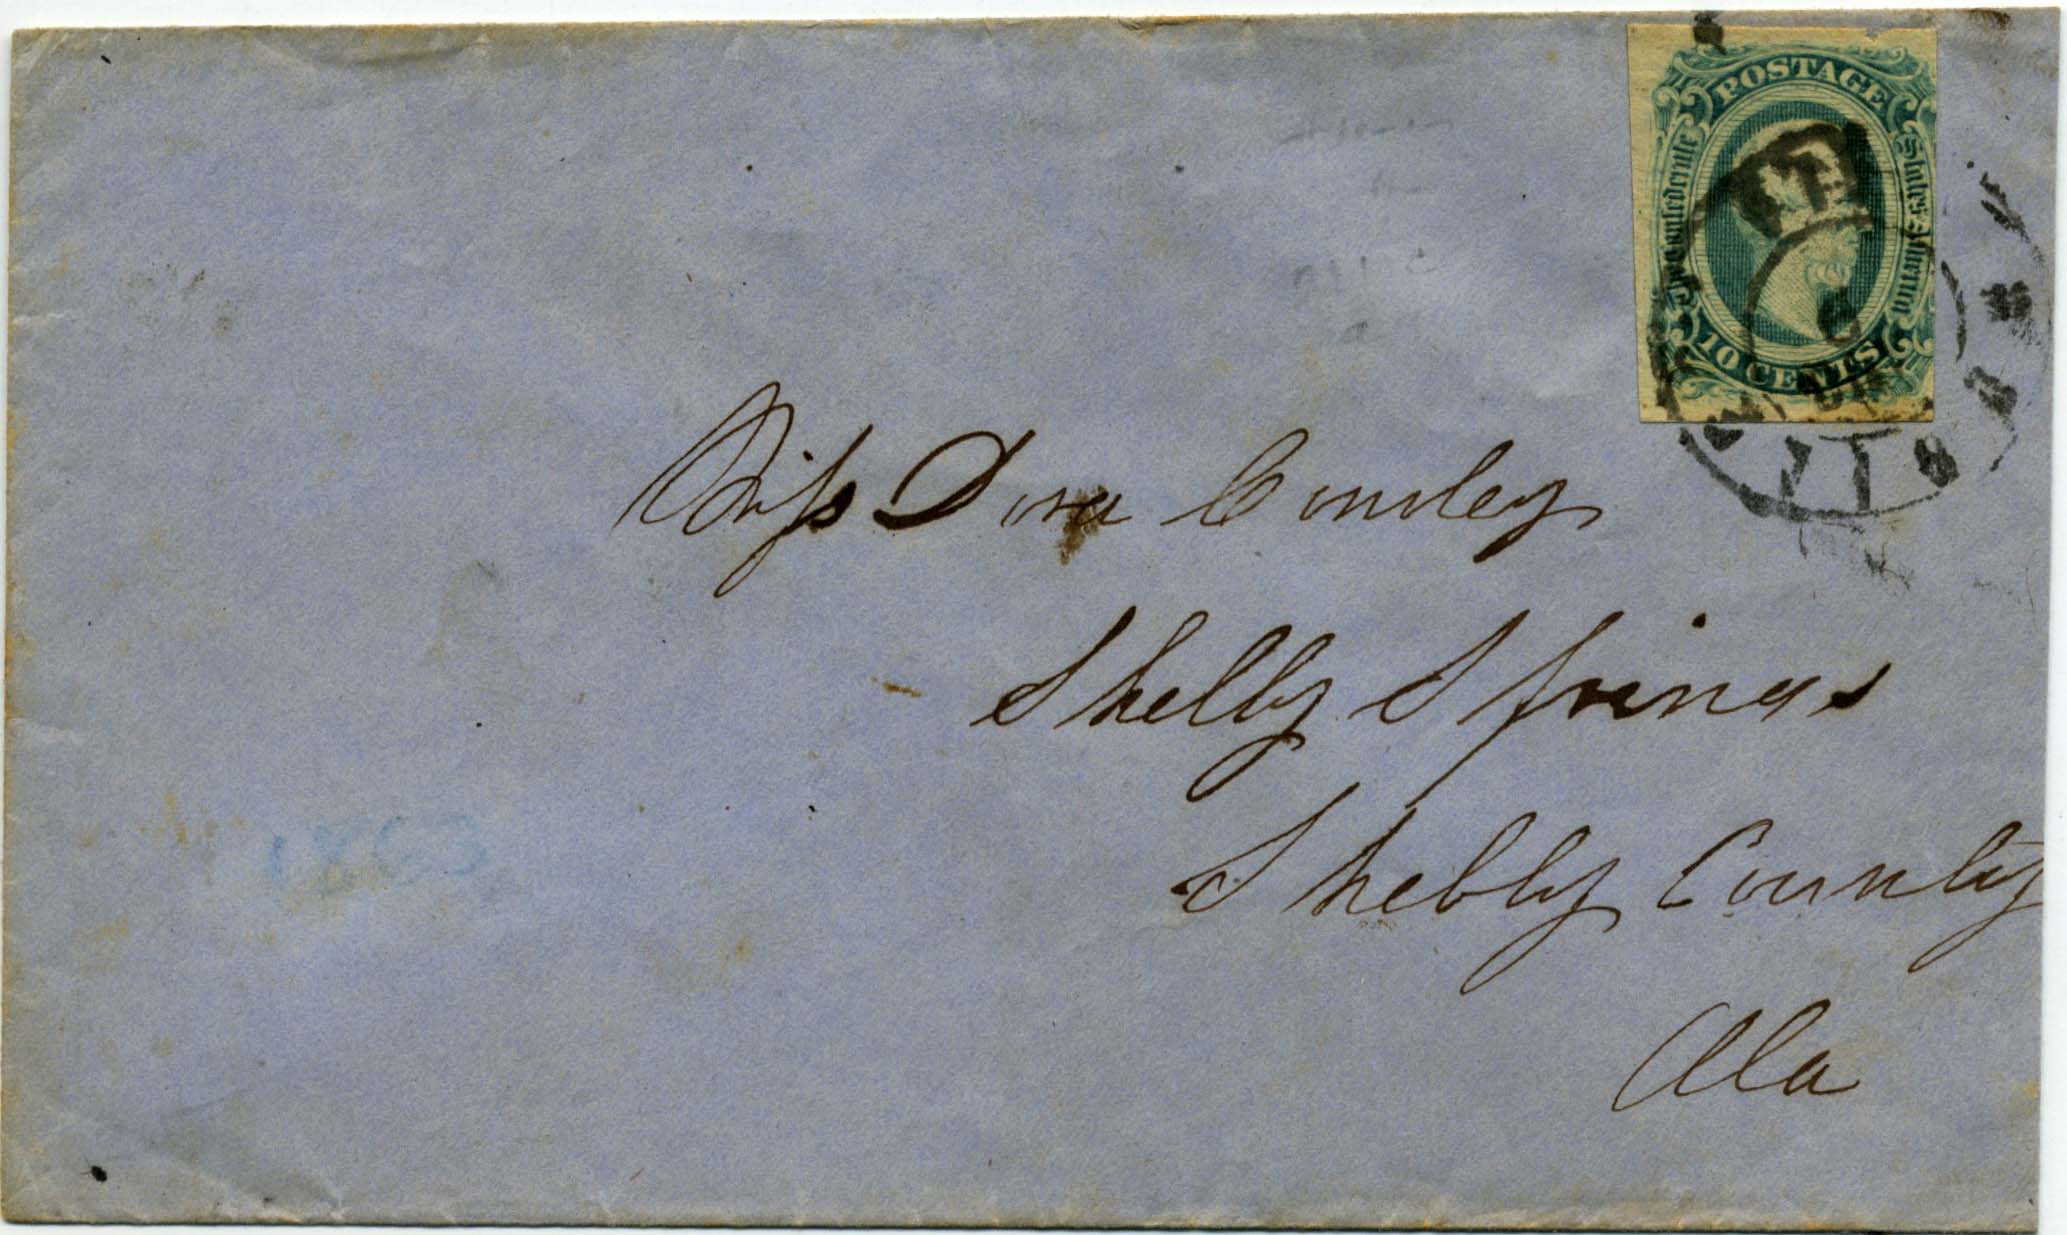 POSTAGE
The Confederate States of America
10 CENTS
Miss Dora
Shelby Springs
Shelby County
Ala